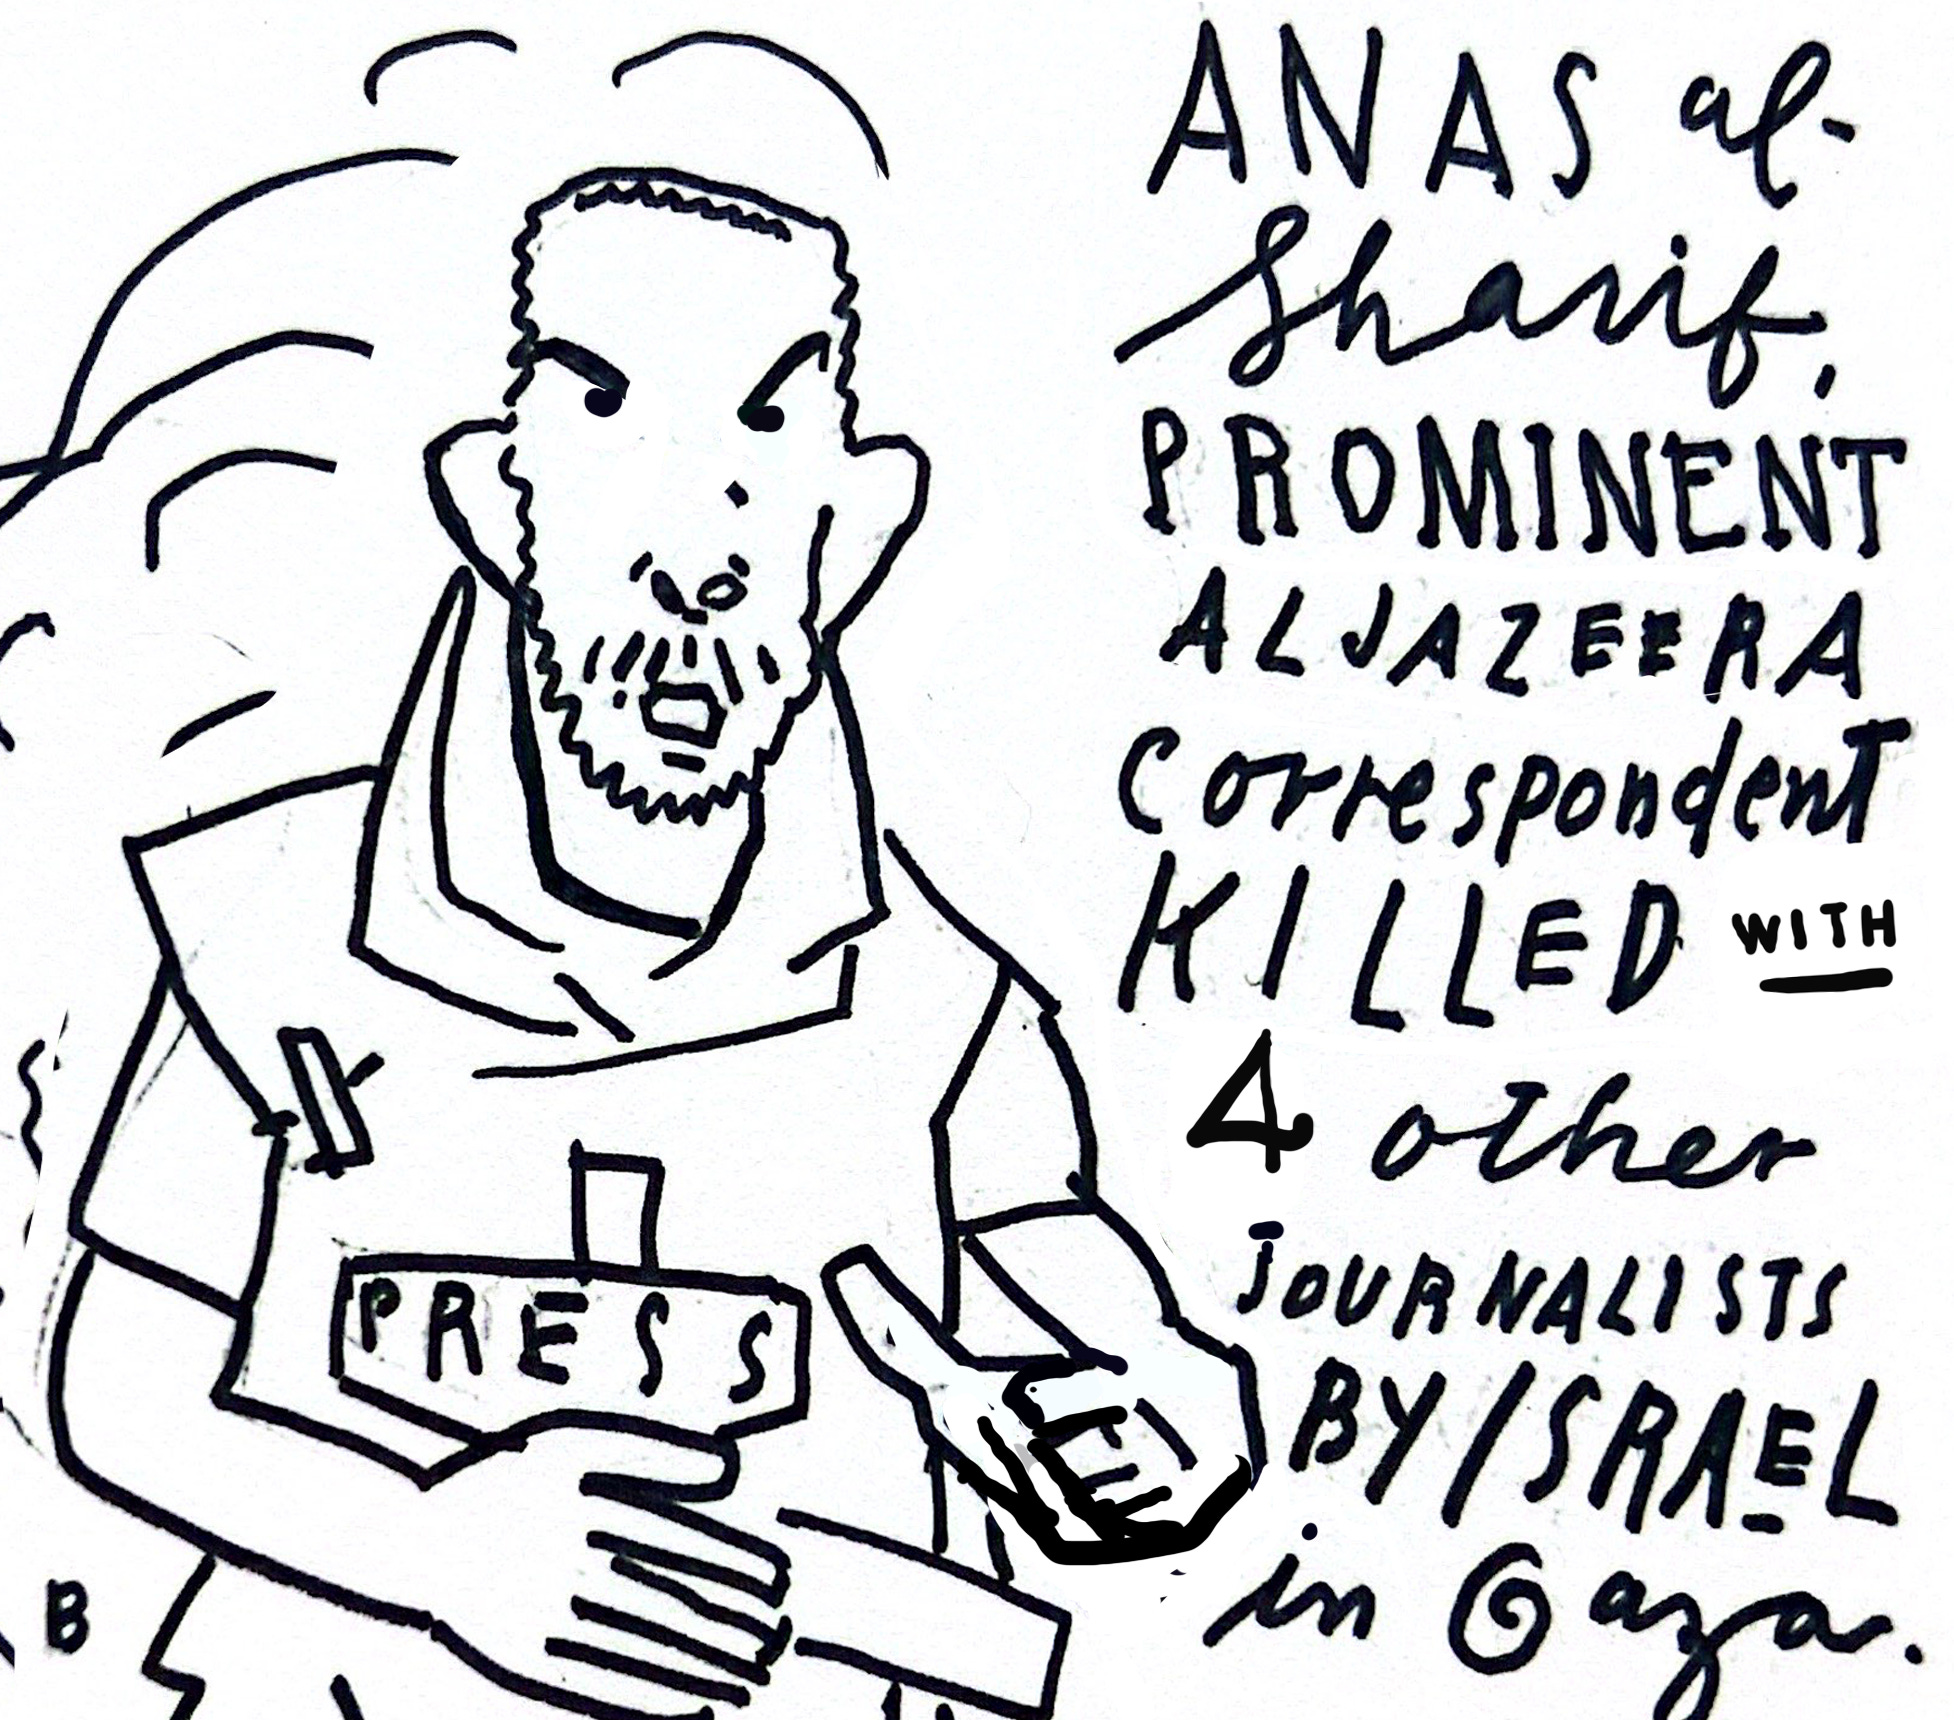 ANAS al-
Sharif,
PROMINENT
ALJAZEERA
CorrespondenT
KILLED WITH
4 other
JOURNALISTS
BY ISRAEL
in Gaza.
PRESS
B